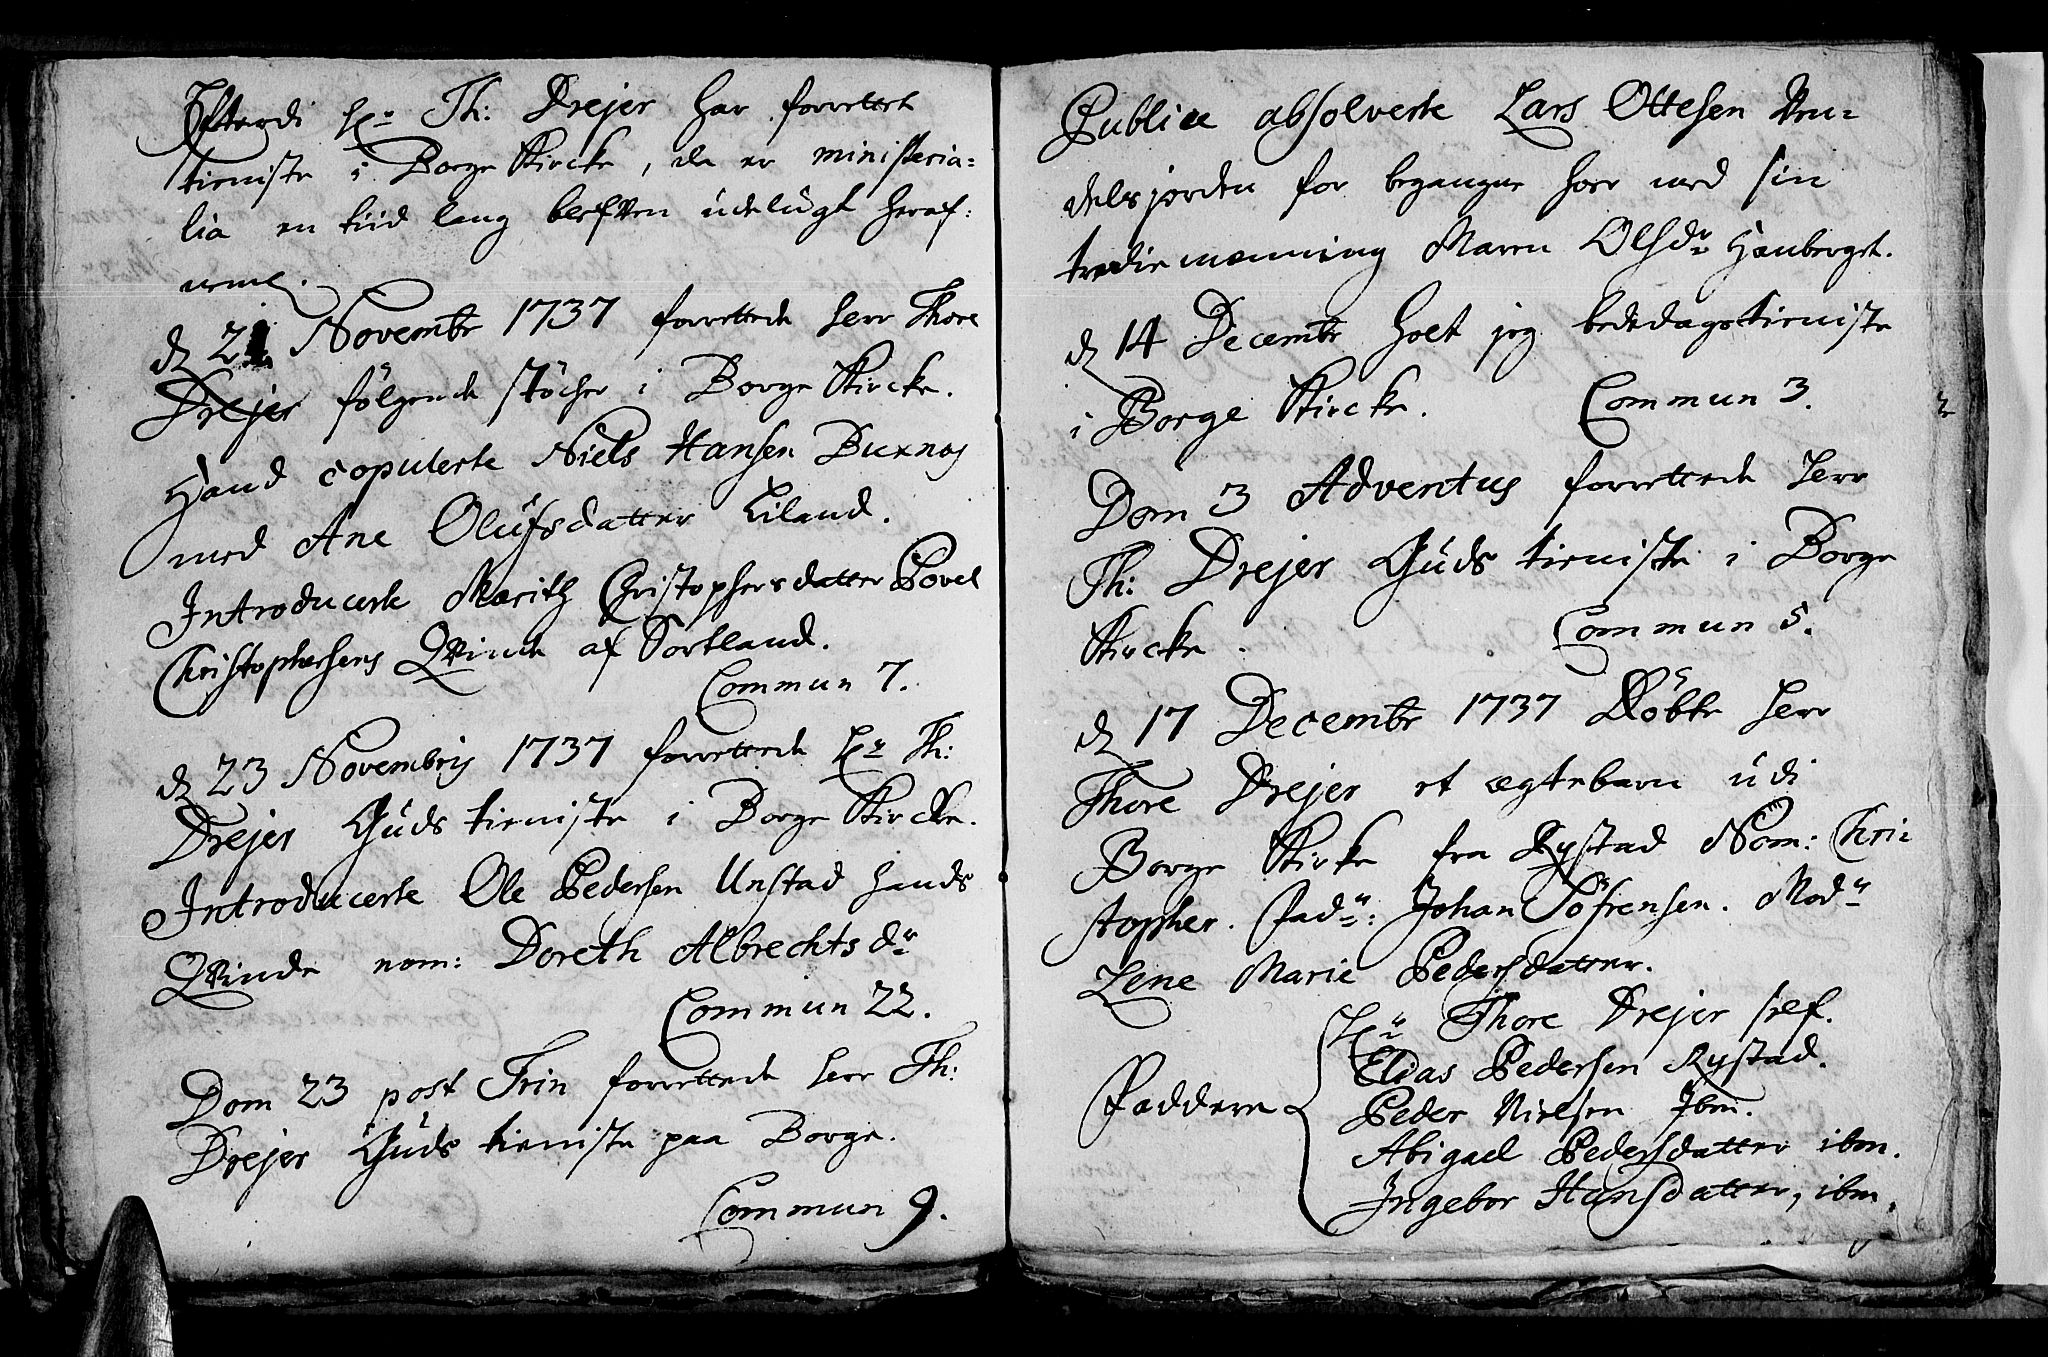 Efterdi Hr: Th: Drejer har forrettet
tieniste i Borge Kircke, da er ministeria=
lia en tiid lang bleffven udelugt heraf:
neml.
d 21 Novembr 1737 forrettede Herr Thore
Drejer fölgende stöcher i Borge Kircke.
Hand copulerte Niels Hansen Buxnæs
med Ane Olufsdatter Liland.
Introducerte Marith Christophersdatter Povel
Christophersens Qvinde af Sortland.
Commun 7.
d 23 Novembris 1737 forrettede Hr Th:
Drejer Guds tieniste i Borge Kircke.
Introducerte Ole Pedersen Unstad hands
Qvinde nom: Doreth Albrechts dr
Commun 22.
Dom 23 post Trin forrettede Herr Th:
Drejer Guds tieniste paa Borge.
Commun 9.
Publice absolverte Lars Ottesen Ven=
delsjorden for begangne hoer med sin
tredie menning Maren Olsdr Hauberget.
d 14 Decembr holt jeg bededagstieniste
i Borge Kircke. Commun 3.
Dom 3 Adventus forrettede Herr
Th: Drejer Guds tieniste i Borge
Kircke. Commun 5.
d 17 Decembr 1737 Döbte Herr
Thore Drejer et ægtebarn udi
Borge Kirke fra Rystad Nom: Chri=
stopher. Fadr: Johan Söfrensen. Modr
Lene Marie Pedersdatter.
Hr Thore Drejer self.
Elias Pedersen Rystad.
Faddere Peder Nielsen Ibm.
Abigael Pedersdatter ibm.
Ingebor Hansdatter, ibm.